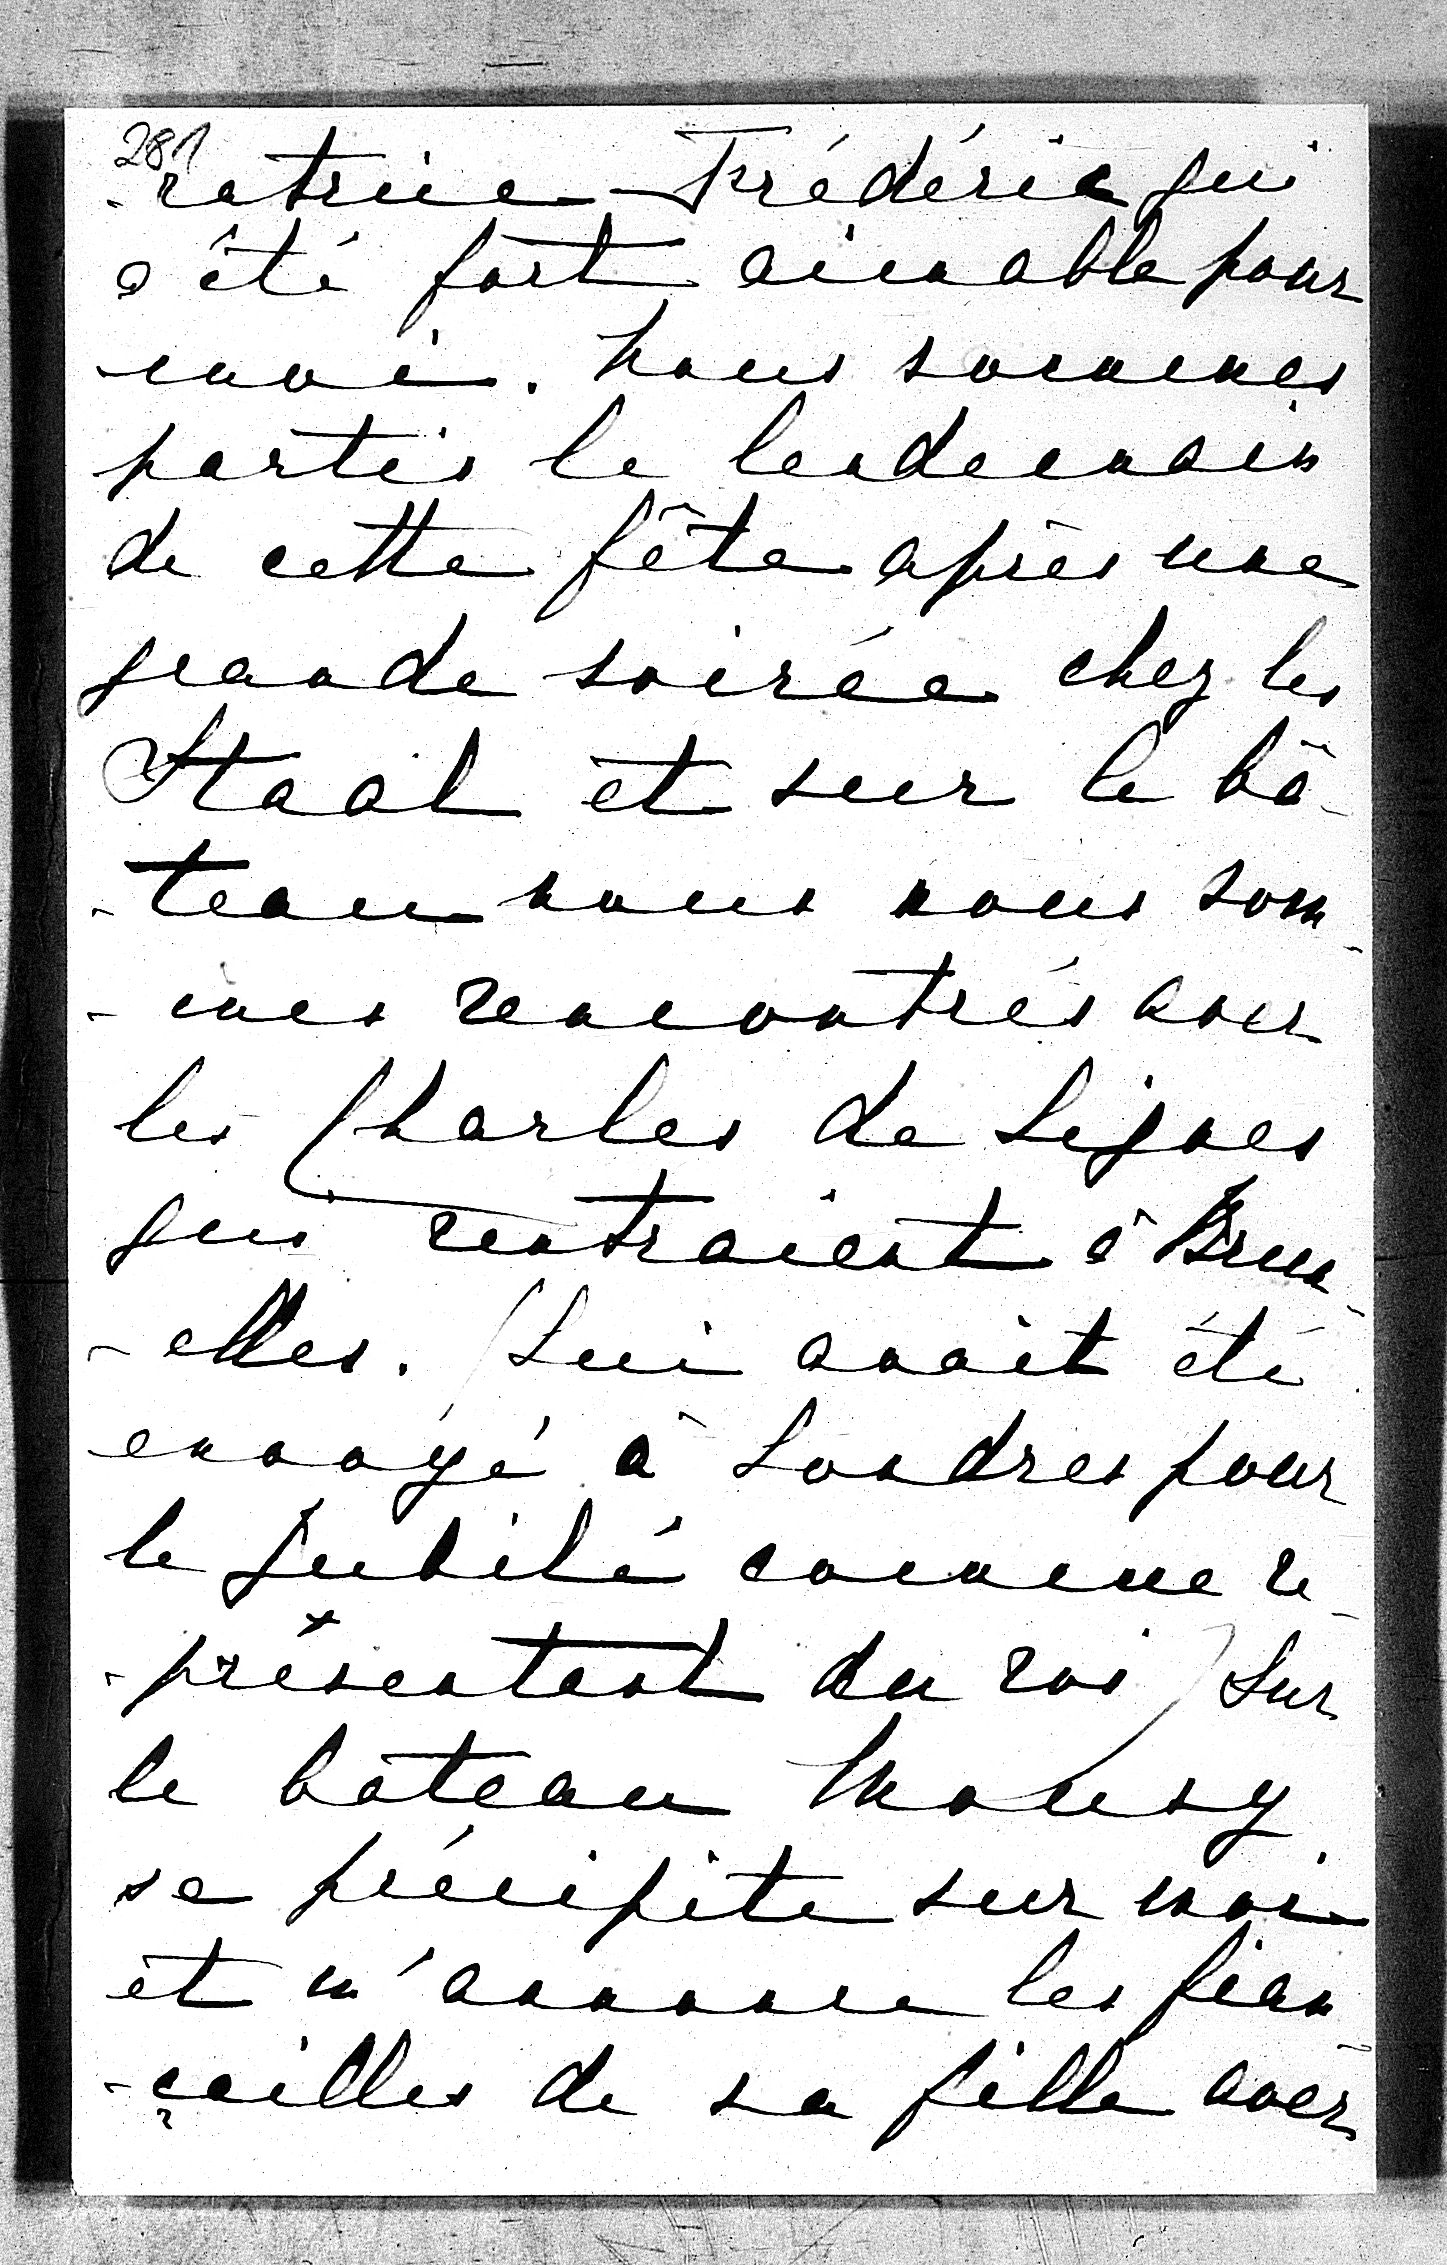 281
-ratrice Frédéric qui
a été fort aimable pour
moi. Nous sommes
partis le lendemain
de cette fête après une
grande soirée chez les
Staal et sur le bâ-
-teau nous nous som-
-mes rencontrés avec
les Charles de Lignes
qui rentraient à Brux-
-elles. (Lui avait été
envoyé à Londres pour
le Jubilé comme re-
-présentant du roi) Sur
le bâteau Mousy
se précipite sur moi
et m'annonce les fian-
-çailles de sa fille avec